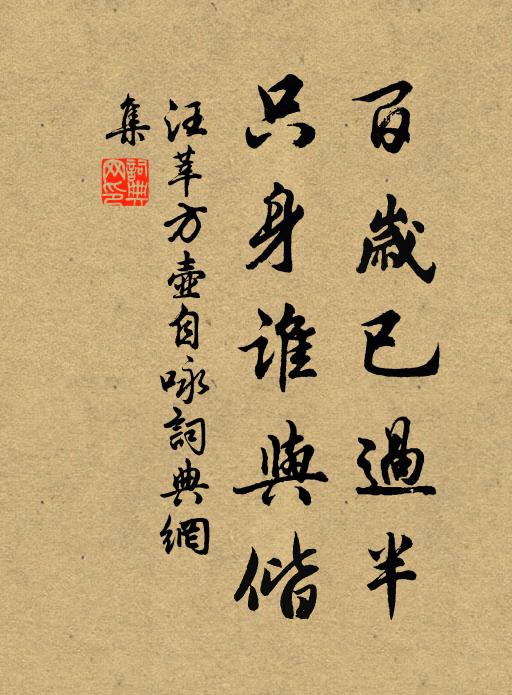 百歲已過半
只身誰與偕
汪莘方壺自咏詞典網
集
詞典
网印